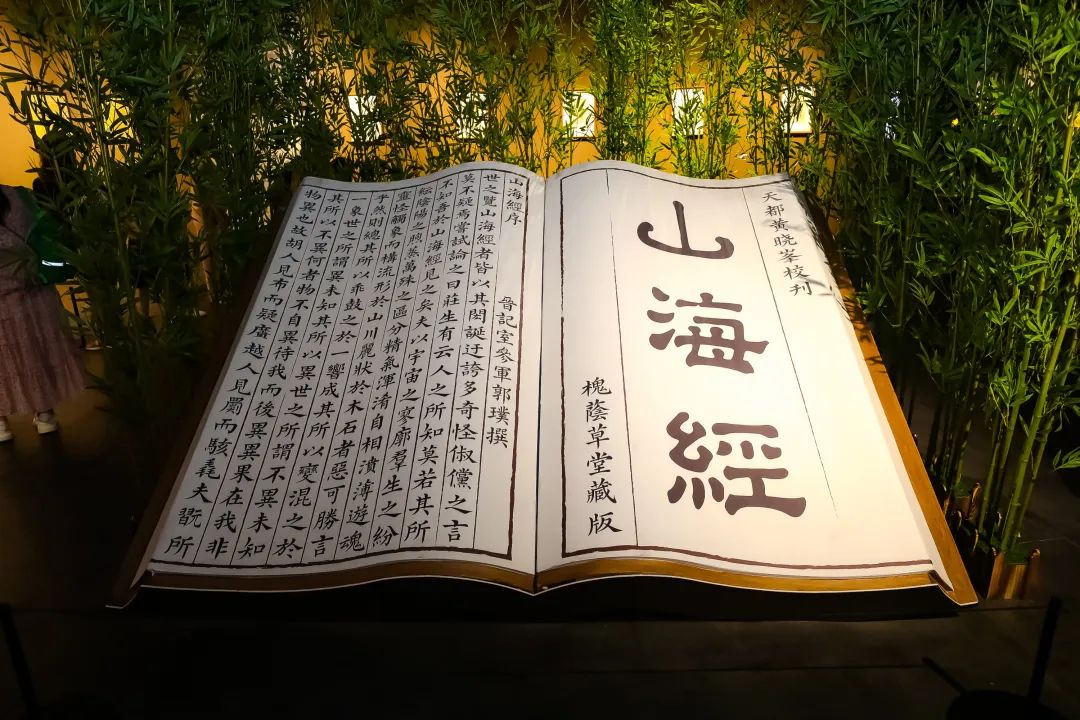 天都黃晓峯校刊
山海經
槐蔭草堂藏版
山海經序
晉記室參軍郭璞撰
世之覽山海經者皆以其閎誕迂誇多奇怪俶儻之言
莫不疑焉嘗試論之曰莊生有云人之所知莫若其所
不知吾於山海經見之矣夫以宇宙之寥廓羣生之紛
紜陰陽之煦蒸萬殊之區分精氣渾淆自相濆薄遊魂
靈怪觸象而構流形於山川麗狀於木石者惡可勝言
乎然則總其所以乖鼓之於一響成其所以變混之於
一象世之所謂異未知其所以異世之所謂不異未知
其所以不異何者物不自異待我而後異異果在我非
物異也故胡人見布而疑黂越人見罽而駭毳夫翫所